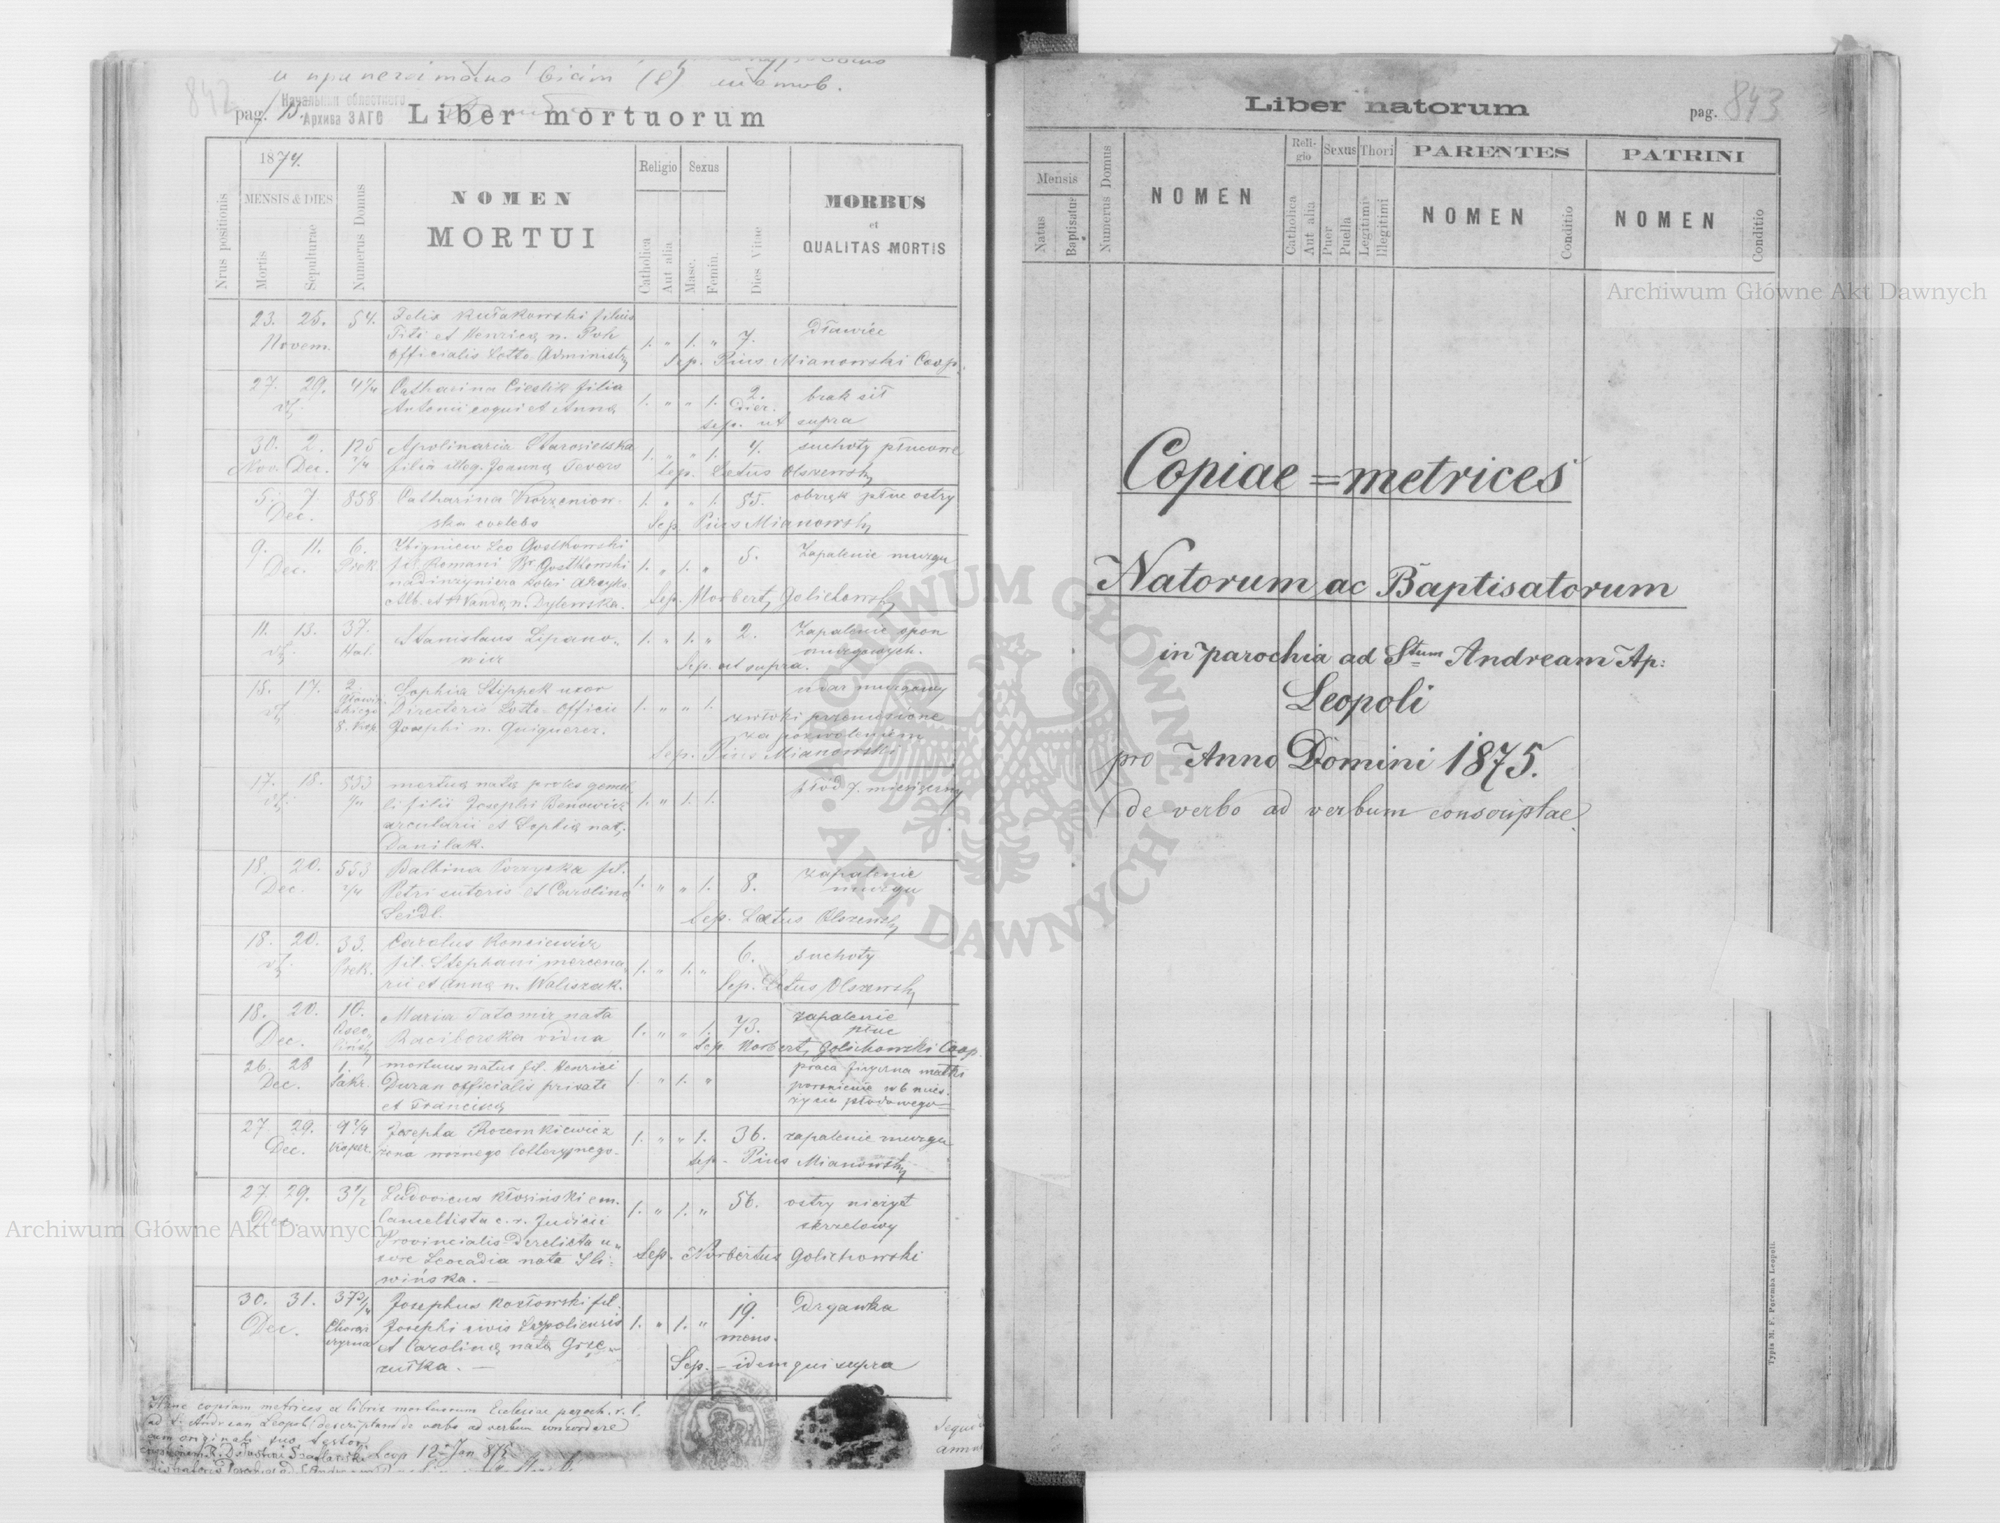 842
и
(8)
Начальник областного
Архива ЗАГС
pag.
Liber mortuorum
1874.
Nrus positionis
MENSIS & DIES
Mortis
Sepulturae
Numerus Domus
NOMEN
MORTUI
Religio
Catholica
Aut alia
Sexus
Masc.
Femin.
Dies Vitae
MORBUS
et
QUALITAS MORTIS
23. 25. 54. Felix Kułakowski filius
Novem. Titi et Henricæ n. Poh 1. " 1. " 7. Dławiec
officialis Lotto Administr.
Sep. Pius Mianowski Coop.
27. 29. 4¼ Catharina Cieslik filia 1. " " 1. 2. brak sił
Antonii coqui et Anna dier.
sep. ut supra
30. 2. 125 Apolinaria Starosielska 1. " " 1. 4. suchoty płucowe
Nov. Dec. 2/4 filia illeg. Joanna
Sep. Letus Olszewsky
5. 7. 858 Catharina Korzeniow- 1. " " 1. 55. obrzęk płuc ostry
Dec. ska coelebs
Sep. Pius Mianowsky
9. 11. 6. Zbigniew Leo Gostkowski 5. Zapalenie muzgu
Dec. Piek. fil. Romani Br. Gostkowski 1. " 1. "
nadinżyniera kolei Arcyks.
Alb. et Wandæ n. Dylewska.
Sep. Norbert, Golichowsky
11. 13. 37. Stanislaus Lipano- 1. " 1. " 2. Zapalenie opon
Hal. wicz muzgowych.
Sep. ut supra.
15. 17. 2 Sophia Stippek uxor udar muzgowy
Directoris Lotto-Officii 1. " " 1.
8. Josephi n. Guiguerez. zwłoki przeniesione
za pozwoleniem
Sep. Pius Mianowski
17. 18. 553 mortua nata proles geme- płód 7. miesięczny
li filii Josephi Benowicz 1. " 1. 1.
arcularii et Sophia nat.
Danilak.
18. 20. 553 Balbina Porzycka fil. zapalenie
Dec. 2/4 Petri sutoris et Carolina 1. " " 1. 8. muzgu
Seidl.
Sep. Lætus Olszewsky
18. 20. 33. Carolus Koncewicz 6. suchoty
Piek. fil. Stephani mercena- 1. " 1. "
rii et Anna n. Waliszak.
Sep. Letus Olszewsky
18. 20. 10. Maria Tatomir nata 1. " " 1. 73. zapalenie
Dec. Osso- Raciborska vidua płuc
lińsky
Sep. Norbert, Golichowski Coop.
26. 28 1. mortuus natus fil. Henrici praca fizyczna matki
Dec. Sakr. Duran officialis privati 1. " 1. " poronienie w 6 mies.
et Francisca życia płodowego
27 29. 9¼ Josepha Rozemkiewicz 1. " " 1. 36. zapalenie muzgu
Dec. Koper. żona woznego lotteryjnego.
Sep. Pius Mianowsky
27 29. 3½ Ludovicus Kłosiński em. 1. " 1. " 56. ostry nieżyt
Dec. Cancellista c. r. Judicii skrzelowy
Provincialis derelicta u-
xore Leocadia nata Sli-
wińska.
Sep. Norbertus Golichowski
30. 31. 37 3/4 Josephus Kozłowski fil. 19. Drgawka
Dec. Chorąż- Josephi civis Leopoliensis 1. " 1. " mens.
czyzna et Carolina nata Grze-
ruszka.
Sep. — idem qui supra
Hanc copiam metrices ex libris mortuorum Ecclesiae paroch. r. l.
ad S. Andream Leopoli descriptam de verbo ad verbum concordare
cum originali suo testor
Leop 12 Jan 875
Liber natorum
pag. 843
Mensis
Natus
Baptisatus
Numerus Domus
NOMEN
Religio
Catholica
Aut alia
Sexus
Puer
Puella
Thori
Legitimi
Illegitimi
PARENTES
NOMEN
Conditio
PATRINI
NOMEN
Conditio
Copiae = metrices
Natorum ac Baptisatorum
in parochia ad Stum Andream Ap:
Leopoli
pro Anno Domini 1875.
de verbo ad verbum conscriptae.
Typis M. F. Poremba Leopoli.
Archiwum Główne Akt Dawnych
Archiwum Główne Akt Dawnych
ARCHIWUM GŁÓWNE
AKT DAWNYCH